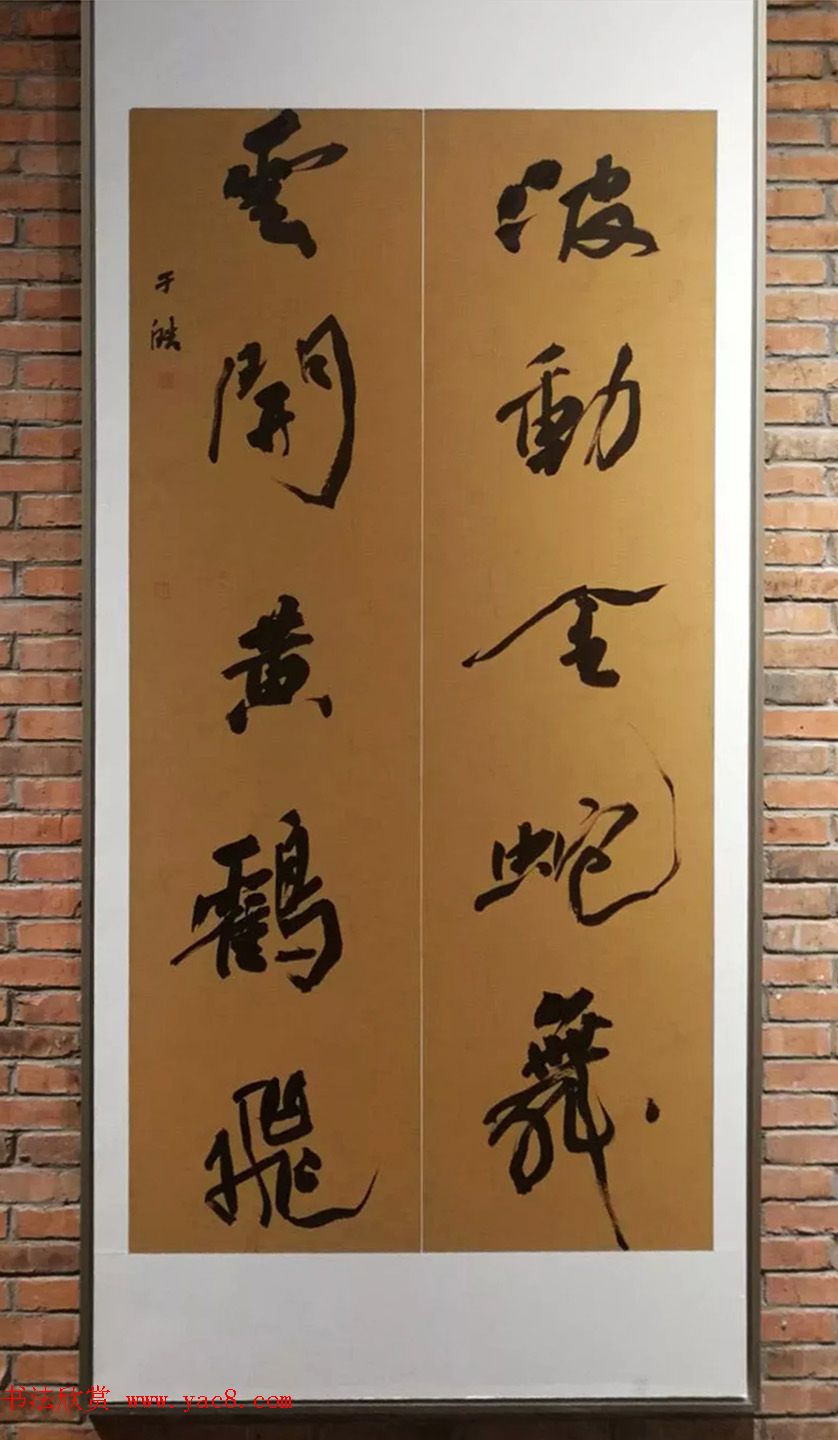 波動金蛇舞
雲開黃鶴飛
于皓
书法欣赏 www.yac8.com